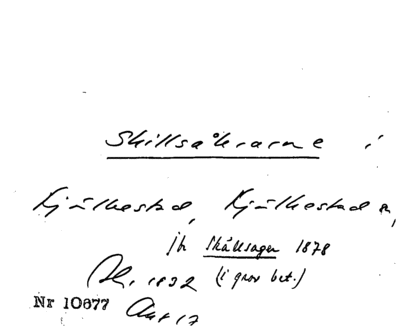 Skillsåkrarne i
Kjülkestad, Kjülkestad sn,
jk Skåksagen 1878
1832 (i grov bet.)
Nr 10677